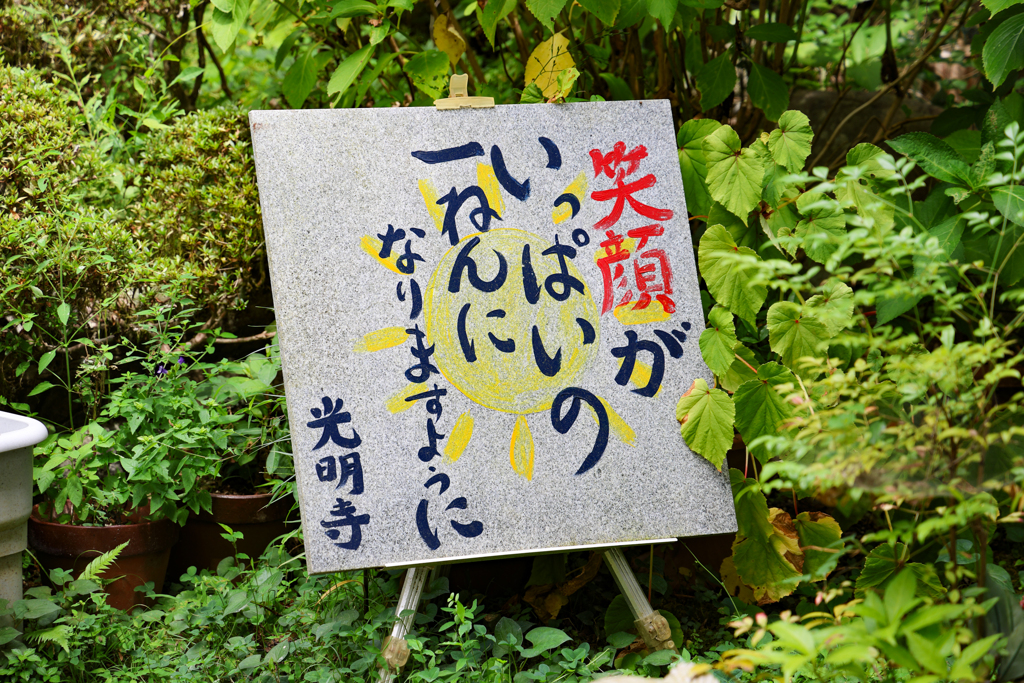 笑顔が
いっぱいの
一ねんに
なりますように
光明寺